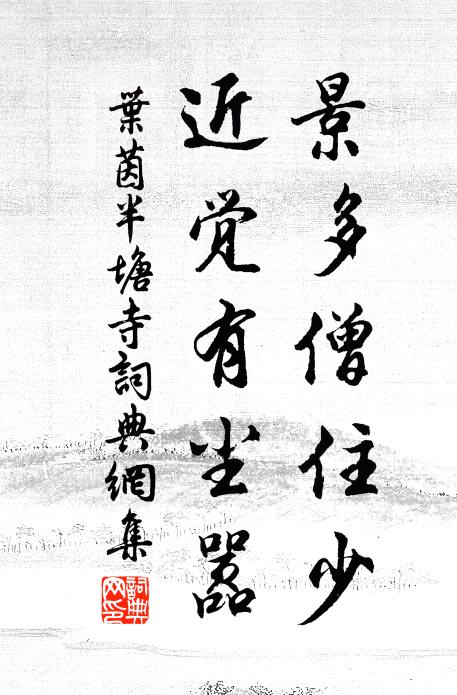 景多僧住少
近觉有尘嚣
葉茵半塘寺詞典網集
詞典
网印